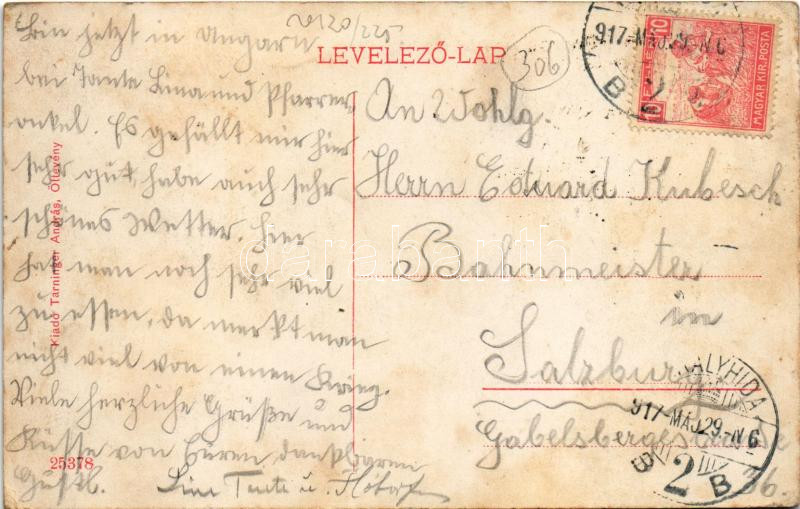 20120/225
LEVELEZŐ-LAP
306
10
MAGYAR KIR. POSTA
917-MÁJ.29.-N.6
B
Bin jetzt in Ungarn
bei Tante Lina und Pfarrer-
onkel. Es gefällt mir hier
sehr gut, habe auch sehr
schönes Wetter, hier
hat man noch sehr viel
zu essen, da merkt man
nicht viel von einen Krieg.
Viele herzliche Grüße und
Küsse von Euren dankbaren
Gustl.
Tante u.
An Wohlg.
Herrn Eduard Kubesch
Bahnmeister
in
Salzburg
Gabelsbergerstrasse
36.
ALYHIDA
917-MÁJ.29.-N.6
2
B
Kiadó Tarninger András, Öttevény
25378
darabanth